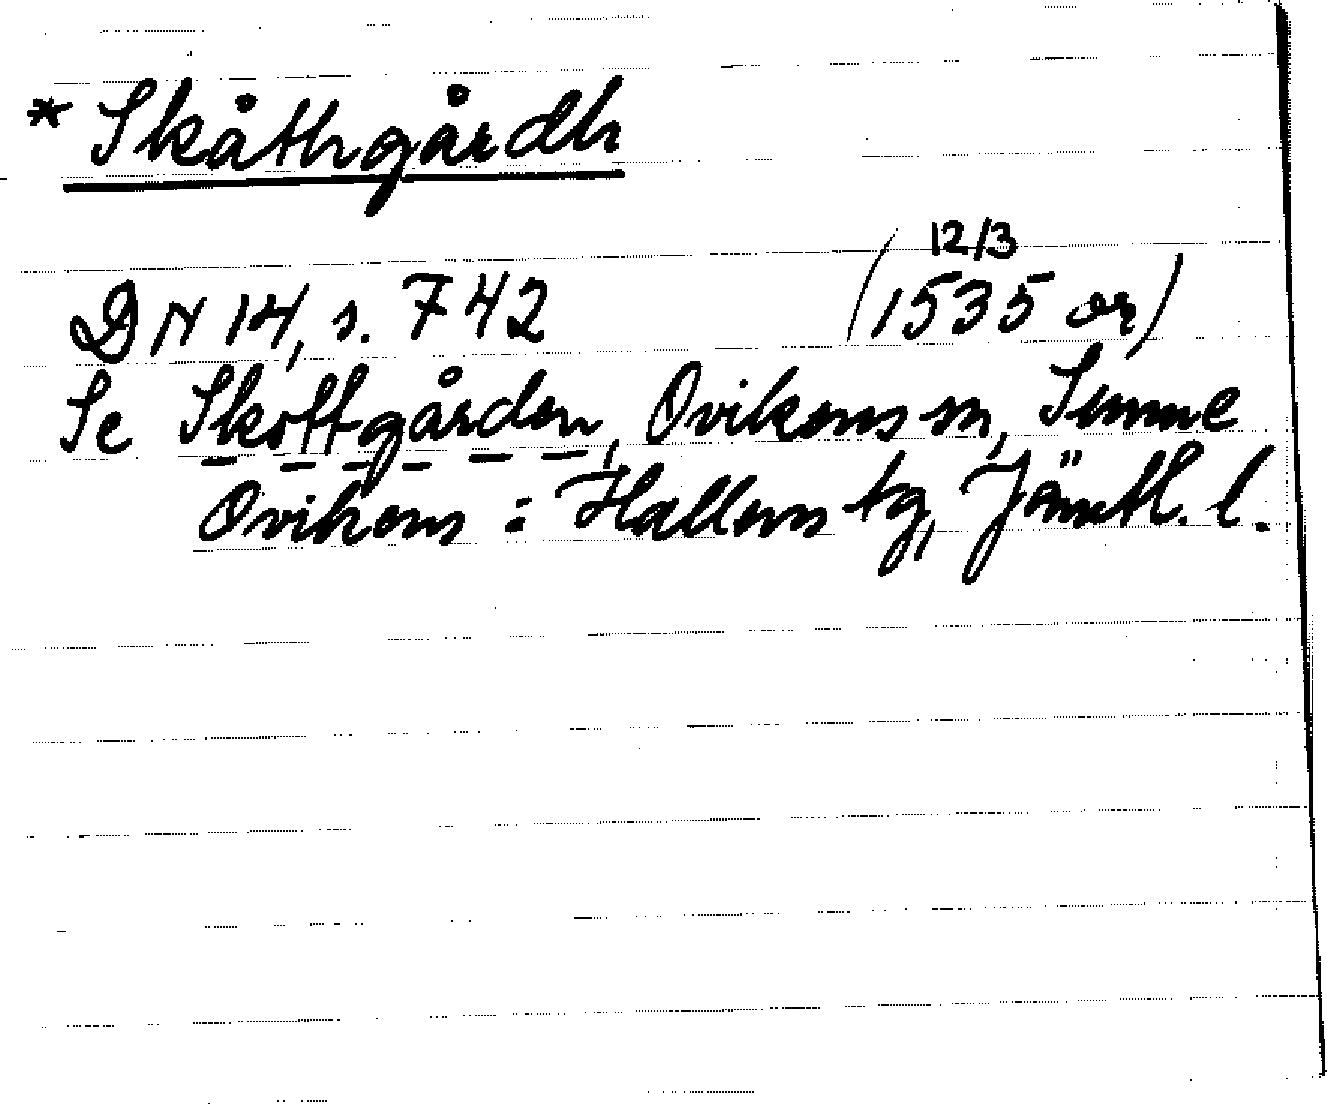 * Skåthgårdh
DN 14, s. 742 (1535 or) 12/3
Se Skottgården, Ovikens sn, Sunne
Ovikens : Hallens tg, Jämtl. l.